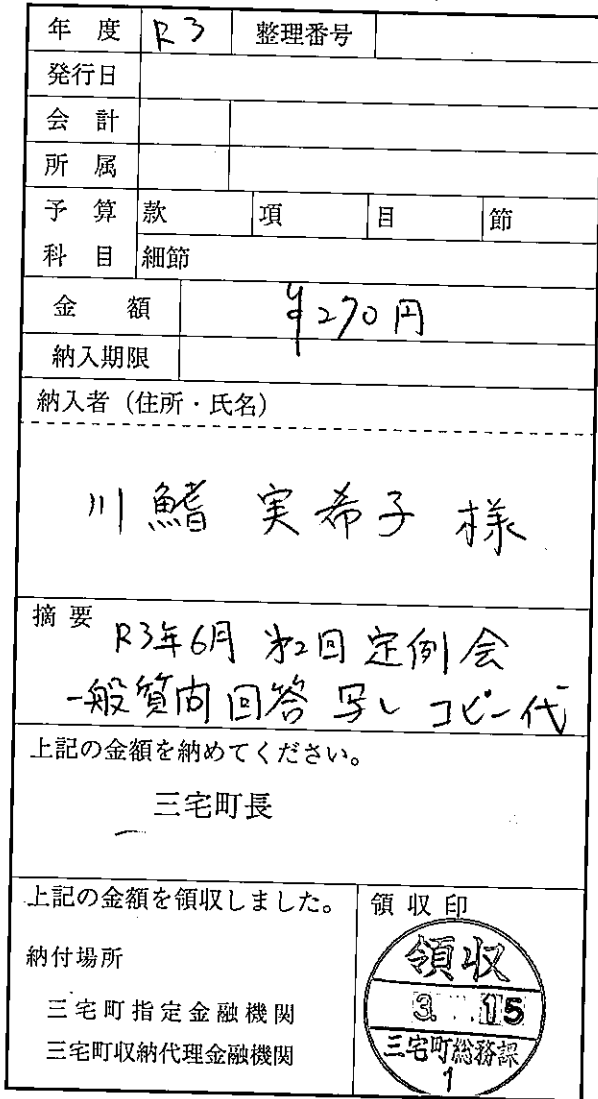 年度 R3 整理番号
発行日
会計
所属
予算 款 項 目 節
科目 細節
金額 ¥270円
納入期限
納入者（住所・氏名）
川鰭 実希子 様
摘要 R3年6月 第2回定例会
一般質問回答 写し コピー代
上記の金額を納めてください。
三宅町長
上記の金額を領収しました。 領収印
納付場所
三宅町指定金融機関
三宅町収納代理金融機関
領収
3. 15
三宅町総務課
1